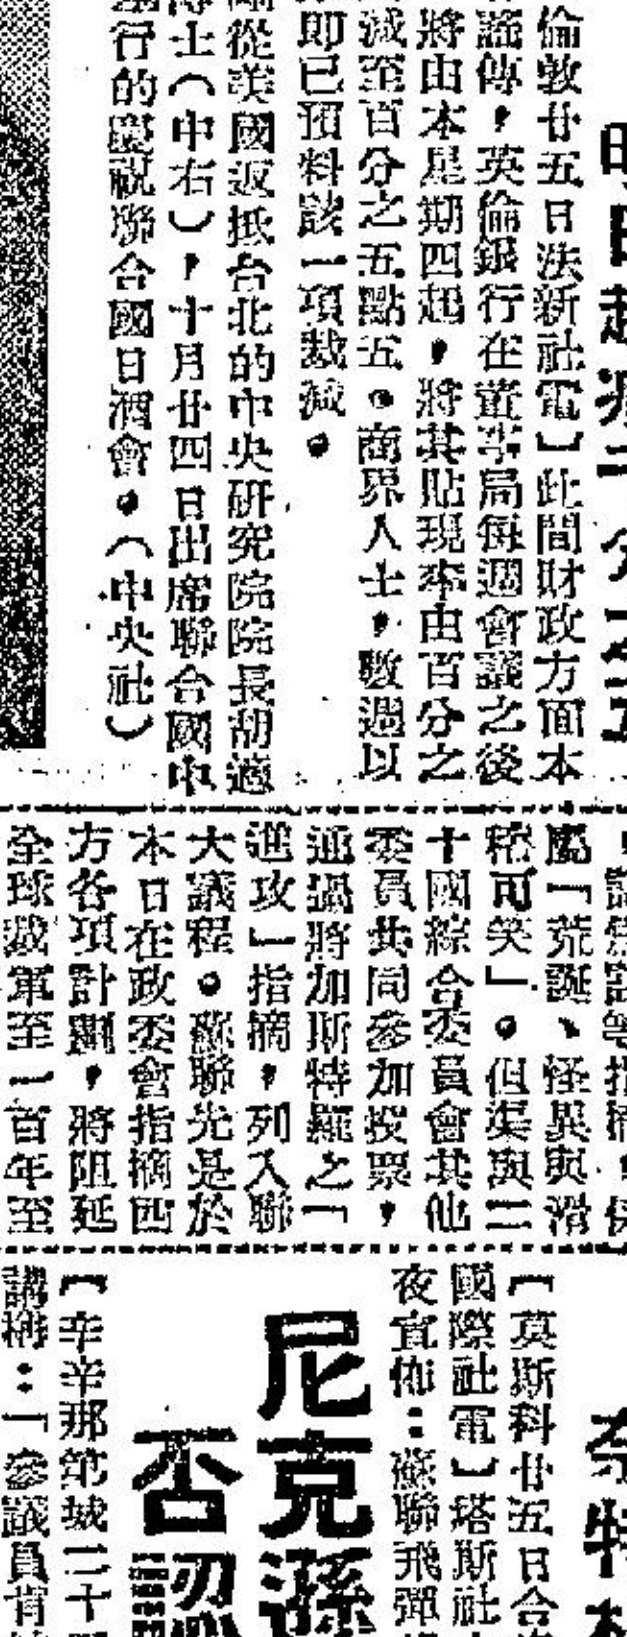 倫敦廿五日法新社電】此間財政方面本
謠傳，英倫銀行在董事局每週會議之後
將由本星期四起，將其貼現率由百分之
減至百分之五點五。商界人士，數週以
即已預料該一項裁減。
從美國返抵台北的中央研究院院長胡適
博士（中右），十月廿四日出席聯合國中
行的慶祝聯合國日酒會。（中央社）
屬「荒誕、怪異與滑
稽可笑」。但渠與二
十國綜合委員會其他
委員共同參加投票，
通過將加斯特羅之「
進攻」指摘，列入聯
大議程。蘇聯先是於
本日在政委會指摘四
方各項計劃，將阻延
全球裁軍至一百年至
【莫斯科廿五日合
國際社電】塔斯社
夜宣佈：蘇聯飛彈
尼克遜
否認
【辛辛那第城二十
講稱：「參議員肯